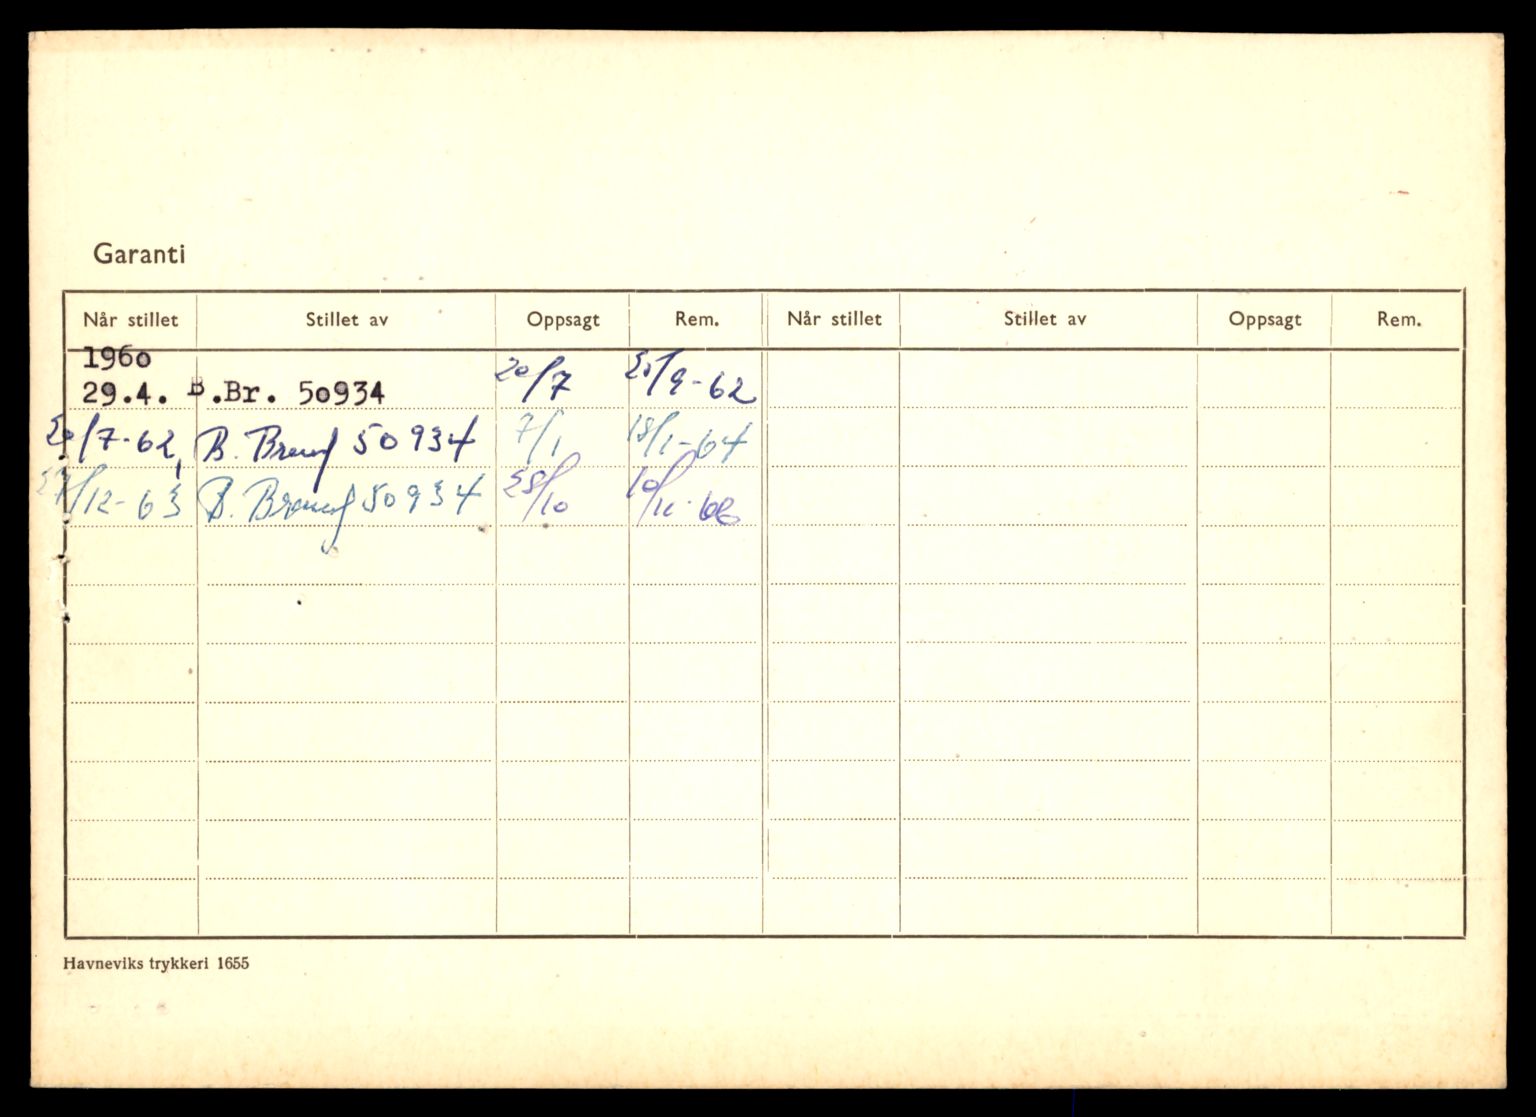 Garanti
Når stillet Stillet av Oppsagt Rem. Når stillet Stillet av Oppsagt Rem.
1960
29.4. B.Br. 50934 20/7 /9-62
20/7-62, B. Brand 50934 7/1 18/1-64
27/12-63 B. Brand 50934 28/10 10/11-66
Havneviks trykkeri 1655